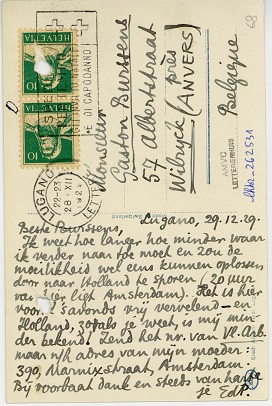 HELVETIA
10
HELVETIA
10
E DI CAPODANNO
LUGANO
LETTERE
22-23
28.XII
Monsieur
Gaston Burssens
57 Albertstraat
Wilryck près
(ANVERS)
Belgique
AMVC
LETTERENHUIS
68
Lugano, 29.12.29.
Beste Burssens,
Ik weet hoe langer hoe minder waar
ik verder naar toe moet en zou de
moeilijkheid wel eens kunnen oplossen
door naar Holland te sporen (20 uur
van hier ligt Amsterdam). Het is hier
vooral 's avonds vrij vervelend en
Holland, zooals je weet, is mij min-
der bekend! Zend het nr. van Vl. Arb.
maar n/h adres van mijn moeder:
390, Marnixstraat, Amsterdam.
Bij voorbaat dank en steeds van harte
je EdP.